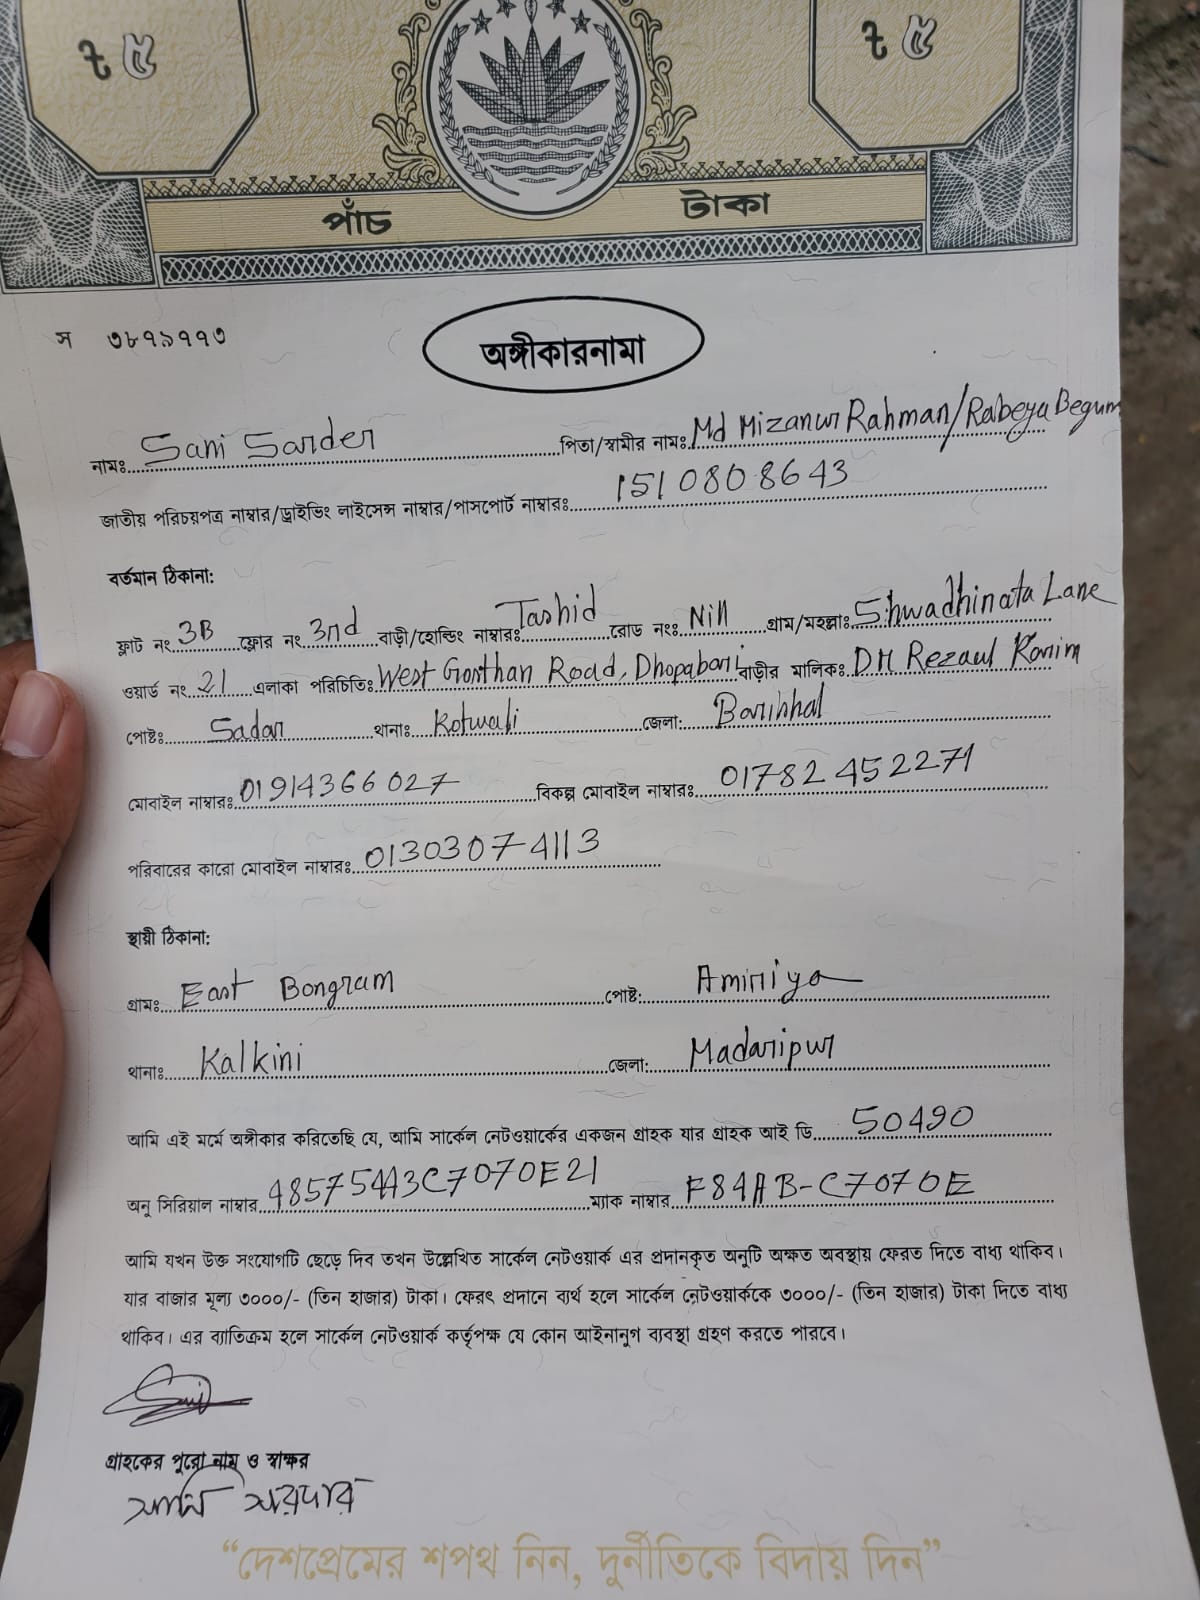 ৳ ৫ ৳ ৫
পাঁচ টাকা
স ৩৮৭৯৭৭৩
অঙ্গীকারনামা
নামঃ Sani Sarder পিতা/স্বামীর নামঃ Md Mizanur Rahman/Rabeya Begum
জাতীয় পরিচয়পত্র নাম্বার/ড্রাইভিং লাইসেন্স নাম্বার/পাসপোর্ট নাম্বারঃ 1510808643
বর্তমান ঠিকানা:
ফ্লাট নং 3B ফ্লোর নং 3nd বাড়ী/হোল্ডিং নাম্বারঃ Tashid রোড নংঃ Nill গ্রাম/মহল্লাঃ Shwadhinata Lane
ওয়ার্ড নং 21 এলাকা পরিচিতিঃ West Gorthan Road, Dhopabari বাড়ীর মালিকঃ DM Rezaul Karim
পোষ্টঃ Sadar থানাঃ Kotwali জেলা: Barishal
মোবাইল নাম্বারঃ 01914366027 বিকল্প মোবাইল নাম্বারঃ 01782452271
পরিবারের কারো মোবাইল নাম্বারঃ 01303074113
স্থায়ী ঠিকানা:
গ্রামঃ East Bongram পোষ্ট: Aminiya
থানাঃ Kalkini জেলা: Madaripur
আমি এই মর্মে অঙ্গীকার করিতেছি যে, আমি সার্কেল নেটওয়ার্কের একজন গ্রাহক যার গ্রাহক আই ডি 50490
অনু সিরিয়াল নাম্বার 485754A3C7070E21 ম্যাক নাম্বার F84AB-C7070E
আমি যখন উক্ত সংযোগটি ছেড়ে দিব তখন উল্লেখিত সার্কেল নেটওয়ার্ক এর প্রদানকৃত অনুটি অক্ষত অবস্থায় ফেরত দিতে বাধ্য থাকিব।
যার বাজার মূল্য ৩০০০/- (তিন হাজার) টাকা। ফেরৎ প্রদানে ব্যর্থ হলে সার্কেল নেটওয়ার্ককে ৩০০০/- (তিন হাজার) টাকা দিতে বাধ্য
থাকিব। এর ব্যাতিক্রম হলে সার্কেল নেটওয়ার্ক কর্তৃপক্ষ যে কোন আইনানুগ ব্যবস্থা গ্রহণ করতে পারবে।
গ্রাহকের পুরো নাম ও স্বাক্ষর
সানি সরদার
“দেশপ্রেমের শপথ নিন, দুর্নীতিকে বিদায় দিন”